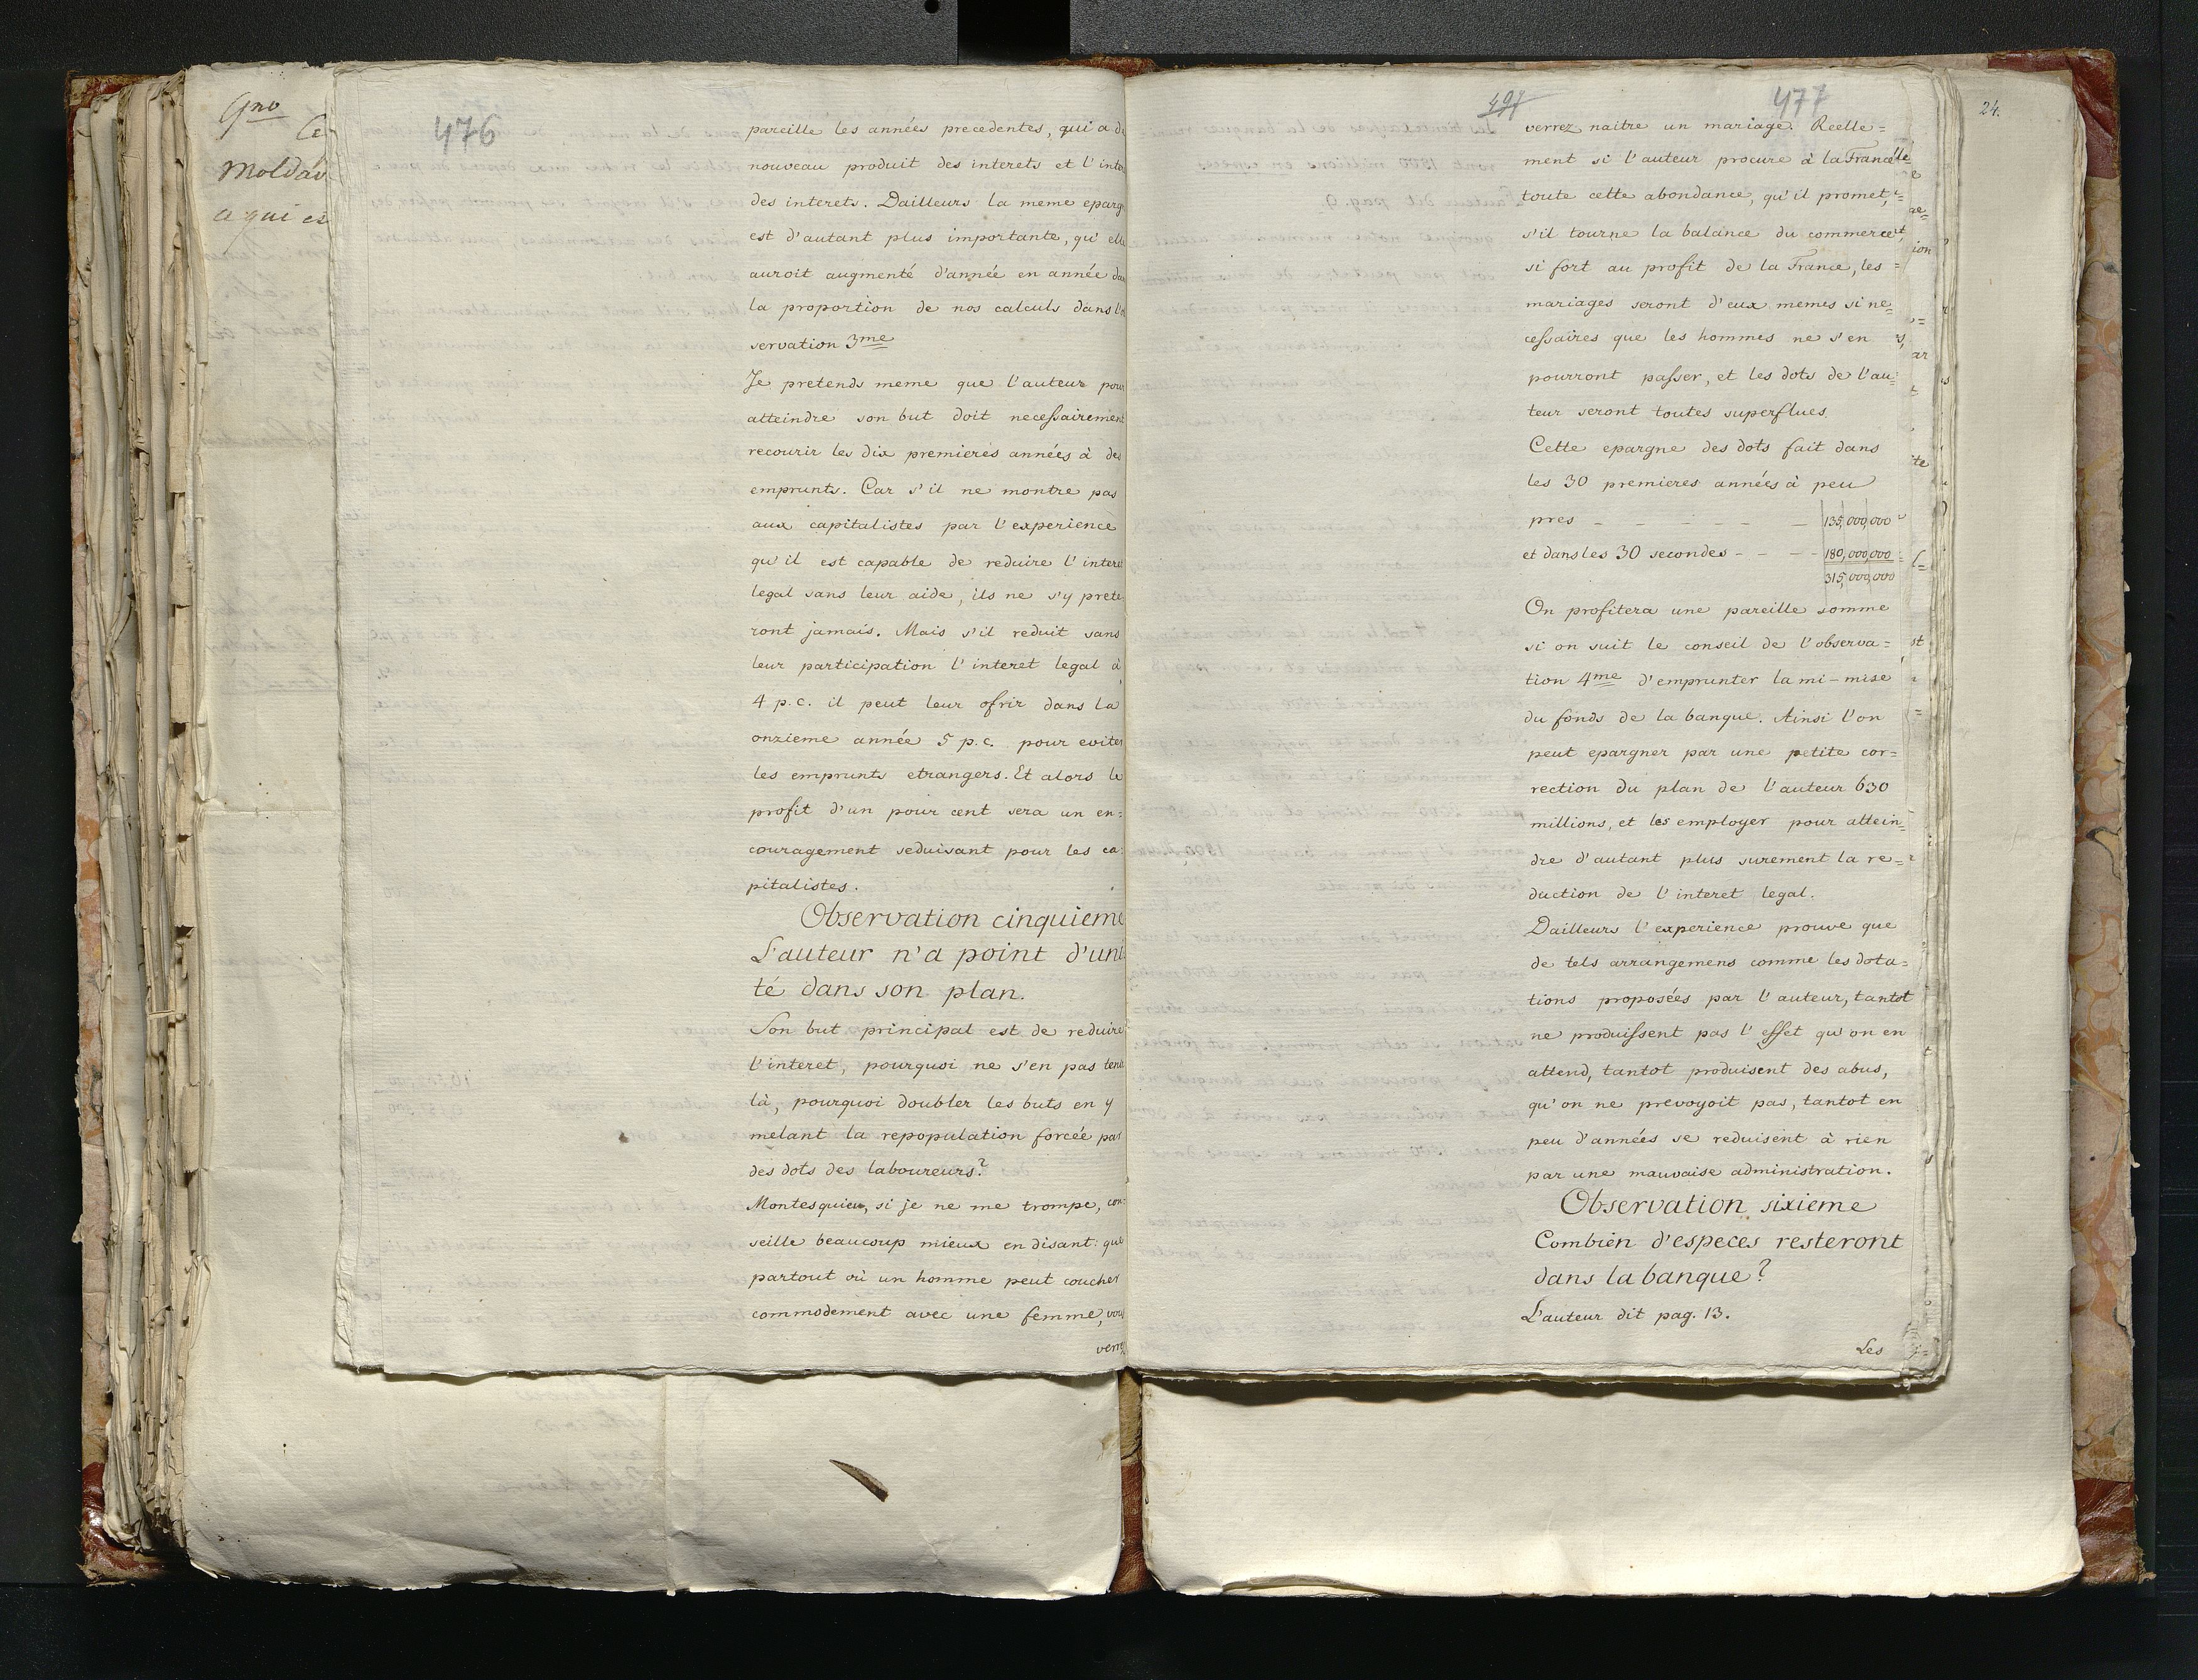 476
pareille les années precedentes, qui a de
nouveau produit des interets et l'inte
des interets. Dailleurs la meme eparg
est d'autant plus importante, qu'elle
auroit augmenté d'année en année da
la proportion de nos calculs dans l'o
servation 3me
Je pretends meme que l'auteur pour
atteindre son but doit necessairement
recourir les dix premieres années à des
emprunts. Car s'il ne montre pas
aux capitalistes par l'experience
qu'il est capable de reduire l'interet
legal sans leur aide, ils ne s'y prete
ront jamais. Mais s'il reduit sans
leur participation l'interet legal à
4 p.c. il peut leur ofrir dans la
onzieme année 5 p.c. pour eviter
les emprunts etrangers. Et alors le
profit d'un pour cent sera un en=
couragement seduisant pour les ca=
pitalistes.
Observation cinquieme
L'auteur n'a point d'uni
té dans son plan.
Son but principal est de reduire
l'interet, pourquoi ne s'en pas tenir
là, pourquoi doubler les buts en y
melant la repopulation forcée par
des dots des laboureurs?
Montesquieu, si je ne me trompe, con=
seille beaucoup mieux en disant: que
partout où un homme peut coucher
commodement avec une femme, vous
verrez
497
477
verrez naitre un mariage. Reelle=
ment si l'auteur procure à la France
toute cette abondance, qu'il promet,
s'il tourne la balance du commerce
si fort au profit de la France, les
mariages seront d'eux memes si ne=
cessaires que les hommes ne s'en
pourront passer, et les dots de l'au=
teur seront toutes superflues.
Cette epargne des dots fait dans
les 30 premieres années à peu
pres - - - - - - 135,000,000
et dans les 30 secondes - - - - 180,000,000
315,000,000
On profitera une pareille somme
si on suit le conseil de l'observa=
tion 4me d'emprunter la mi-mise
du fonds de la banque. Ainsi l'on
peut epargner par une petite cor=
rection du plan de l'auteur 630
millions, et les employer pour attein=
dre d'autant plus surement la re=
duction de l'interet legal.
Dailleurs l'experience prouve que
de tels arrangemens comme les dota=
tions proposées par l'auteur, tantot
ne produissent pas l'effet qu'on en
attend, tantot produisent des abus,
qu'on ne prevoyoit pas, tantot en
peu d'années se reduisent à rien
par une mauvaise administration.
Observation sixieme
Combien d'especes resteront
dans la banque?
L'auteur dit pag. 13.
Les
24.